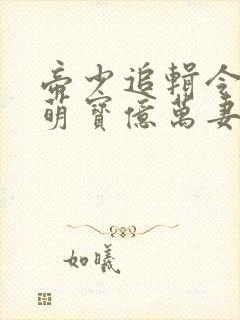 帝少追輯令
萌寶億萬妻
如曦